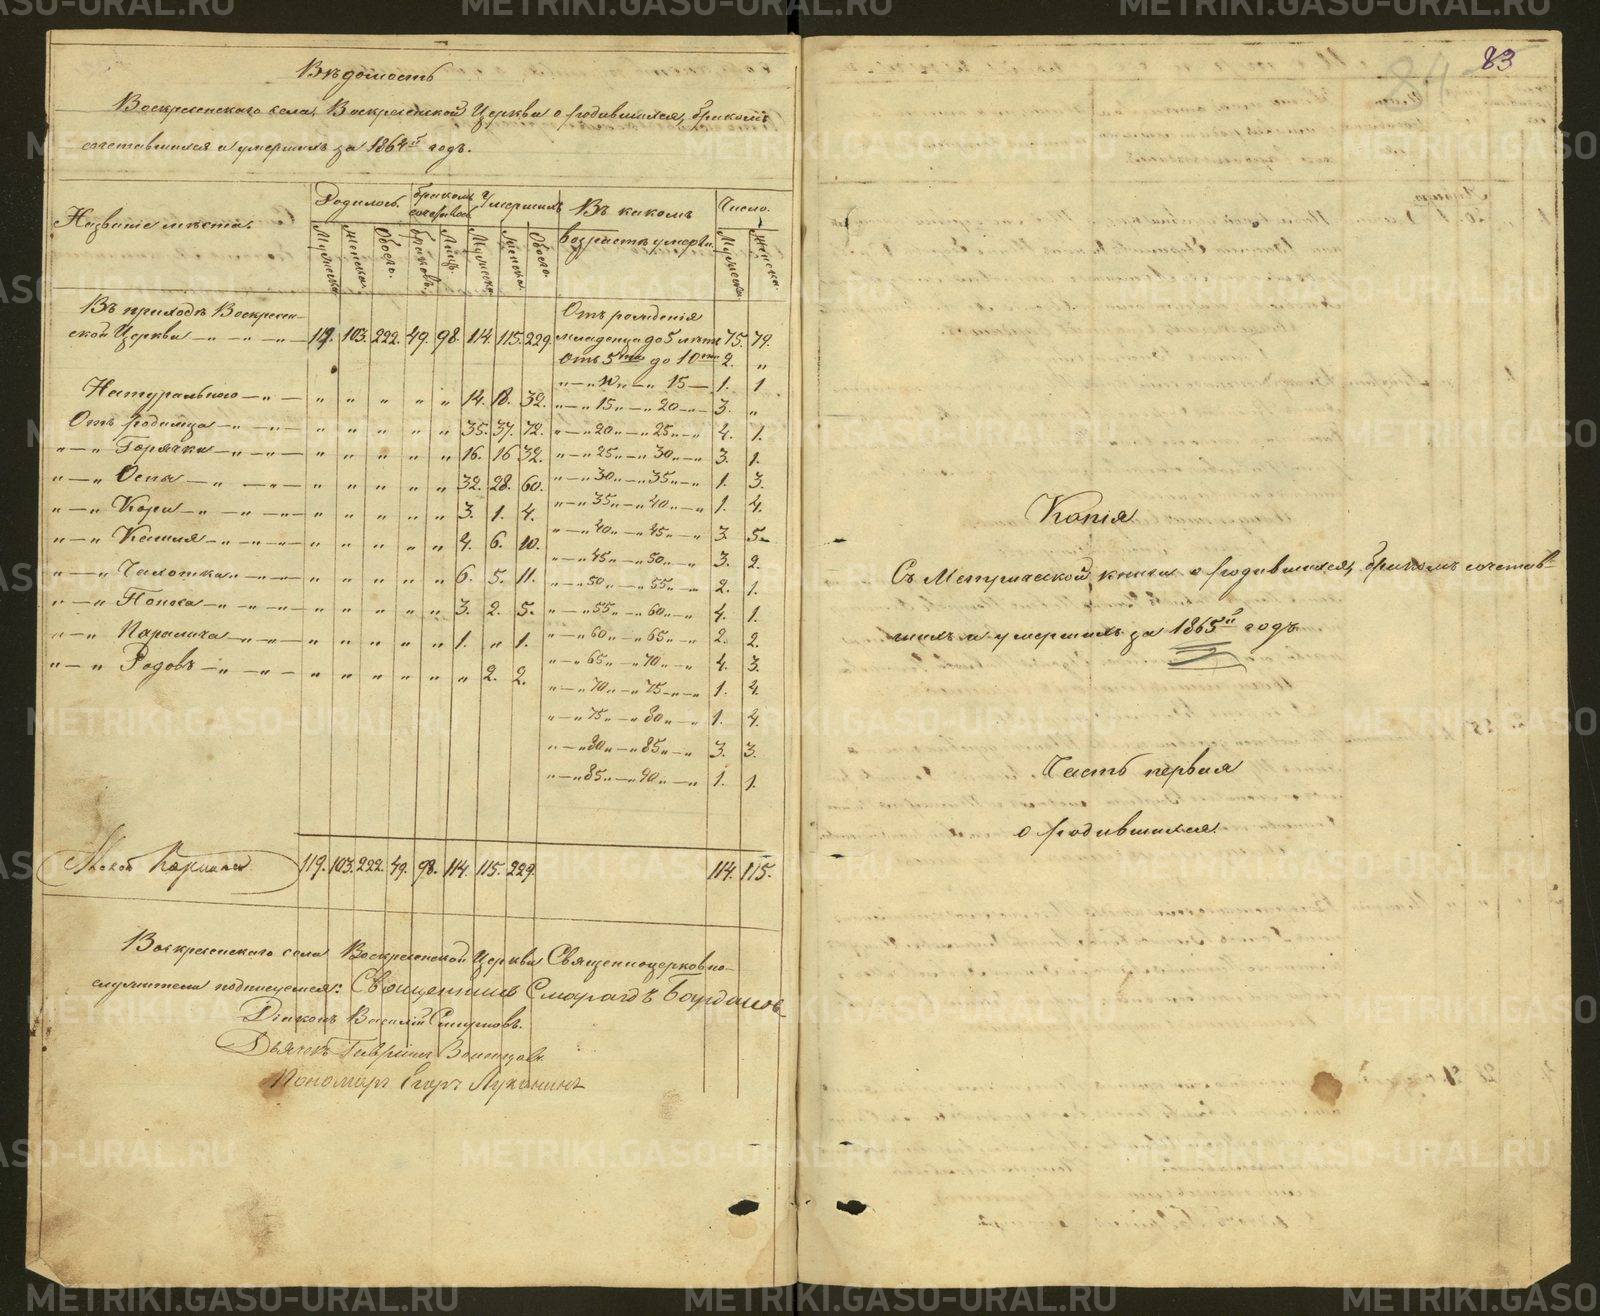 Вѣдомость
Воскресенскаго села, Воскресенской Церкви о родившихся, бракомъ
сочетавшихся и умершихъ за 1864й годъ.
Названіе мѣста. Родилось. Бракомъ сочеталось Умершихъ Въ какомъ возрастѣ умерли. Число.
Мужеска. Женска. Обоего. Браковъ. Лицъ. Мужеска. Женска. Обоего. Мужеска. Женска.
Въ приходѣ Воскресен- Отъ рожденія
ской Церкви — „ — „ — 119. 103. 222. 49. 98. 114. 115. 229. младенца до 5 лѣтъ 75. 79.
Отъ 5ти до 10ти 2. „
„ — „ 10 „ — „ 15 — 1. 1
Натуральною — „ — „ „ „ „ „ 14. 18. 32. „ — „ 15 „ — „ 20 — „ 3. „
Отъ родимца — „ — „ — „ „ „ „ „ 35. 37. 72. „ — „ 20 „ — „ 25 „ — „ 4. 1.
„ — „ Горячки — „ — „ — „ „ „ „ „ 16. 16 32. „ — „ 25 „ — „ 30 „ — „ 3. 1.
„ — „ Оспы — „ — „ — „ „ „ „ „ 32. 28. 60. „ — „ 30 „ — „ 35 „ — „ 1. 3.
„ — „ Кори — „ — „ — „ „ „ „ „ 3. 1. 4. „ — „ 35 „ — „ 40 „ — „ 1. 4.
„ — „ Кашля — „ — „ — „ „ „ „ „ 4. 6. 10. „ — „ 40 „ — „ 45 „ — „ 3. 5.
„ — „ 45 „ — „ 50 „ — „ 3. 2.
„ — „ Чахотки „ — „ — „ „ „ „ „ 6. 5. 11. „ — „ 50 „ — „ 55 „ — „ 2. 1.
„ — „ Поноса — „ — „ — „ „ „ „ „ 3. 2. 5. „ — „ 55 „ — „ 60 „ — „ 4. 1.
„ — „ Паралича — „ — „ „ „ „ „ „ 1. „ 1. „ — „ 60 „ — „ 65 „ — „ 2. 2.
„ — „ Родовъ — „ — „ — „ „ „ „ „ „ 2. 2. „ — „ 65 „ — „ 70 „ — „ 4. 3.
„ — „ 70 „ — „ 75 „ — „ 1. 4.
„ — „ 75 „ — „ 80 „ — „ 1. 4.
„ — „ 80 „ — „ 85 „ — „ 3. 3.
„ — „ 85 „ — „ 90 „ — „ 1. 1.
119. 103. 222. 49. 98. 114. 115. 229. 114. 115.
Воскресенскаго села Воскресенской Церкви Священноцерковно-
служители подписуемся: Священникъ Смарагдъ
Діаконъ Василій Смирновъ.
Дьячекъ Гавріилъ
Пономарь Егоръ Луканинъ
83
Копія
Съ Метрической книги о родившихся, бракомъ сочетав-
шихъ и умершихъ за 1865й годъ
Часть первая
о родившихся.
METRIKI.GASO-URAL.RU